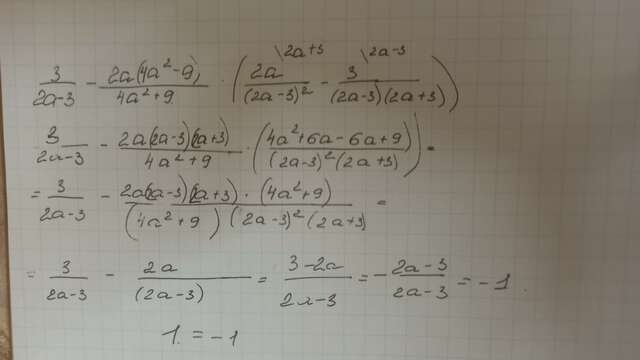 3/(2a-3) - 2a(4a²-9)/(4a²+9) · (2a\2a+3/(2a-3)² - 3\2a-3/((2a-3)(2a+3)))
3/(2a-3) - 2a(2a-3)(2a+3)/(4a²+9) · ((4a²+6a-6a+9)/((2a-3)²(2a+3))) =
= 3/(2a-3) - 2a(2a-3)(2a+3)·(4a²+9)/((4a²+9)(2a-3)²(2a+3)) =
= 3/(2a-3) - 2a/(2a-3) = (3-2a)/(2a-3) = -(2a-3)/(2a-3) = -1.
1. = -1